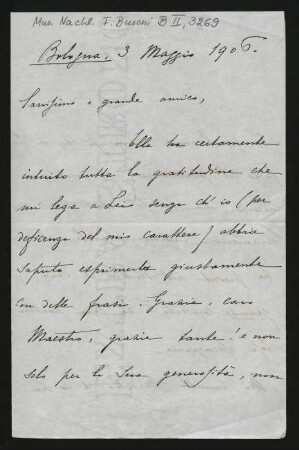 Mus. Nachl. F. Busoni B II, 3269
Bologna, 3 Maggio 1906.
Carissimo e grande amico,
Ella ha certamente
intuito tutta la gratitudine che
mi lega a Lei senza ch'io (per
deficenza del mio carattere) abbia
saputo esprimerla giustamente
con delle frasi. Grazie, caro
Maestro, grazie tante! e non
solo per la Sua generosità, non